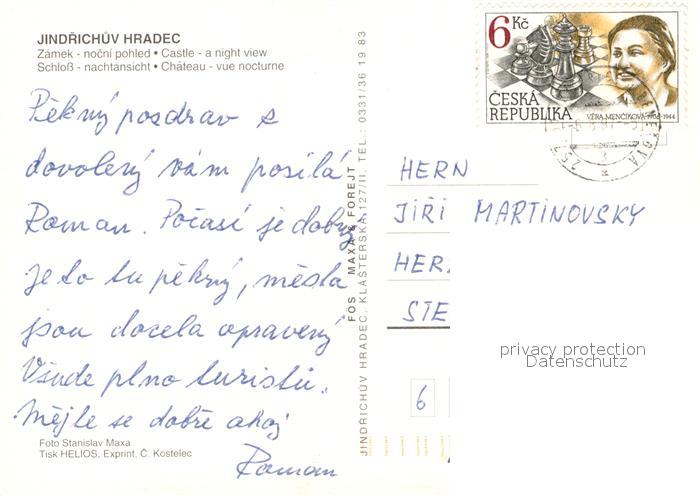 JINDŘICHŮV HRADEC
Zámek - noční pohled • Castle - a night view
Schloß - nachtansicht • Château - vue nocturne
Pěkný pozdrav z
dovolený vám posílá
Roman. Počasí je dobrý
je to tu pěkný, města
jsou docela opravený
Všude plno turistů.
Mějte se dobře ahoj
Roman
Foto Stanislav Maxa
Tisk HELIOS, Exprint, Č. Kostelec
FOS MAXA & FOREJT
JINDŘICHŮV HRADEC, KLÁŠTERSKÁ 127/II, TEL.: 0331/36 19 83
6 Kč
ČESKÁ
REPUBLIKA
VĚRA MENČÍKOVÁ 1906-1944
HERN
JIŘI MARTINOVSKY
HER
STE
6
privacy protection
Datenschutz